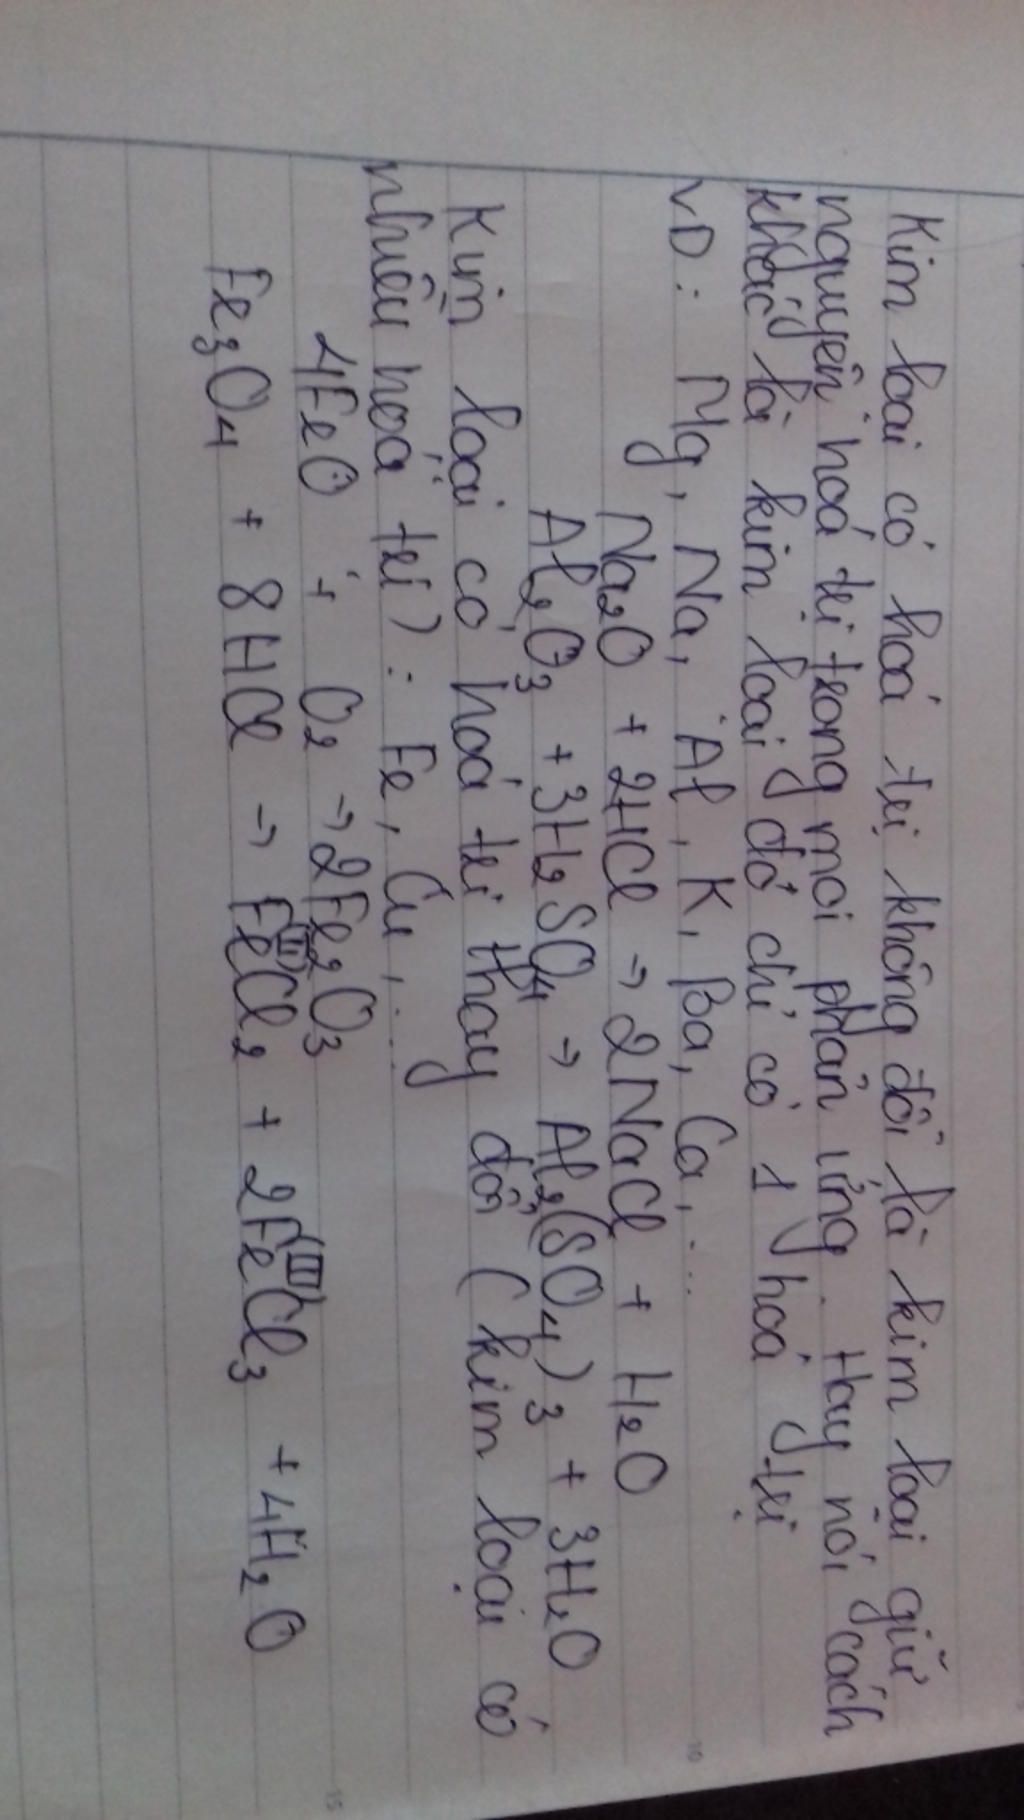 Kim loại có hoá trị không đổi là kim loại giữ
nguyên hoá trị trong mọi phản ứng. Hay nói cách
khác là kim loại đó chỉ có 1 hoá trị
VD: Mg, Na, Al, K, Ba, Ca,...
Na₂O + 2HCl → 2NaCl + H₂O
Al₂O₃ + 3H₂SO₄ → Al₂(SO₄)₃ + 3H₂O
Kim loại có hoá trị thay đổi (kim loại có
nhiều hoá trị): Fe, Cu,...
4FeO + O₂ → 2Fe₂O₃
Fe₃O₄ + 8HCl → Fe^(II)Cl₂ + 2Fe^(III)Cl₃ + 4H₂O
10
15